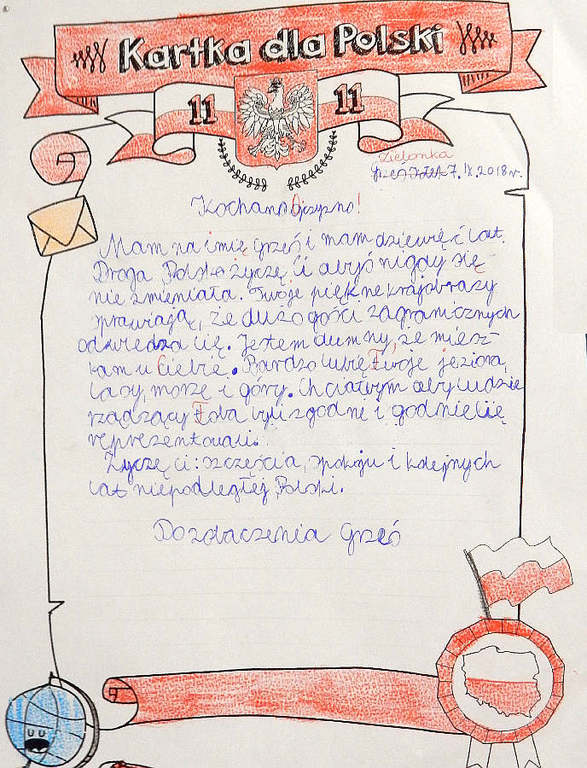 Kartka dla Polski
11 11
Zielonka
7.IX.2018 r.
Kochana Ojczyzno!
Mam na imię Grześ i mam dziewięć lat.
Droga Polsko życzę Ci abyś nigdy się
nie zmieniała. Twoje piękne krajobrazy
sprawiają, że dużo gości zagranicznych
odwiedza cię. Jestem dumny, że miesz-
kam u Ciebie. Bardzo lubię Twoje jeziora,
lasy, morze i góry. Chciałbym aby ludzie
rządzący Tobą byli zgodni i godnie Cię
reprezentowali.
Życzę ci: szczęścia, spokoju i kolejnych
lat niepodległej Polski.
Do zobaczenia Grześ